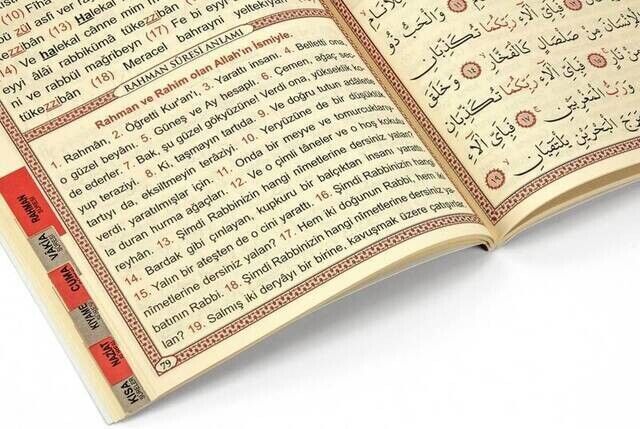 (10) Vel
asfi ver
zül
(13) Fe bi eyyi
Halekal cânne mim
ızzibân (14)
(16) Ve halekal
eyyi âlâi rabbikümâ tükezzibân
(17) Fe bi eyyi
ni ve rabbül mağribeyn
bahrayni yeltekıyân
tükezzibân (18) Meracel
RAHMAN SÛRESİ ANLAMI
Rahman ve Rahim olan Allah'ın ismiyle.
1. Rahmân, 2. Öğretti Kur'an'ı, 3. Yarattı insanı. 4. Belletti ona,
o güzel beyânı. 5. Güneş ve Ay hesaplı. 6. Çemen, ağaç sec-
de ederler. 7. Bak, şu güzel gökyüzüne! Verdi ona, yükseklik ko-
yup teraziyi. 8. Ki, taşmayın tartıda. 9. Ve doğru tutun adâletle
tartıyı da, eksiltmeyin terâziyi. 10. Yeryüzüne de bir düşüklük
verdi, yaratılmışlar için. 11. Onda bir meyve ve tomurcuklarıy-
la duran hurma ağaçları. 12. Ve o çimli tâneler ve o hoş kokulu
reyhân. 13. Şimdi Rabbinizin hangi nîmetlerine dersiniz yalan?
14. Bardak gibi çınlayan, kupkuru bir balçıktan insanı yarattı.
15. Yalın bir ateşten de o cini yarattı. 16. Şimdi Rabbinizin hangi
nîmetlerine dersiniz yalan? 17. Hem iki doğunun Rabbi, hem iki
batının Rabbi. 18. Şimdi Rabbinizin hangi nîmetlerine dersiniz ya-
lan? 19. Salmış iki deryâyı bir birine, kavuşmak üzere çatışırlar.
79
RAHMAN
SÛRESİ
VAKIA
CUMA
KIYAME
NAZİAT
KISA
SÛRELER
رَبِّكُمَا تُكَذِّبَانِ
مِنْ صَلْصَالٍ كَالْفَخَّارِ
وَخَلَقَ
فَبِأَيِّ آلَاءِ رَبِّكُمَا تُكَذِّبَانِ
وَرَبُّ الْمَغْرِبَيْنِ
فَبِأَيِّ آلَاءِ
الْبَحْرَيْنِ يَلْتَقِيَانِ